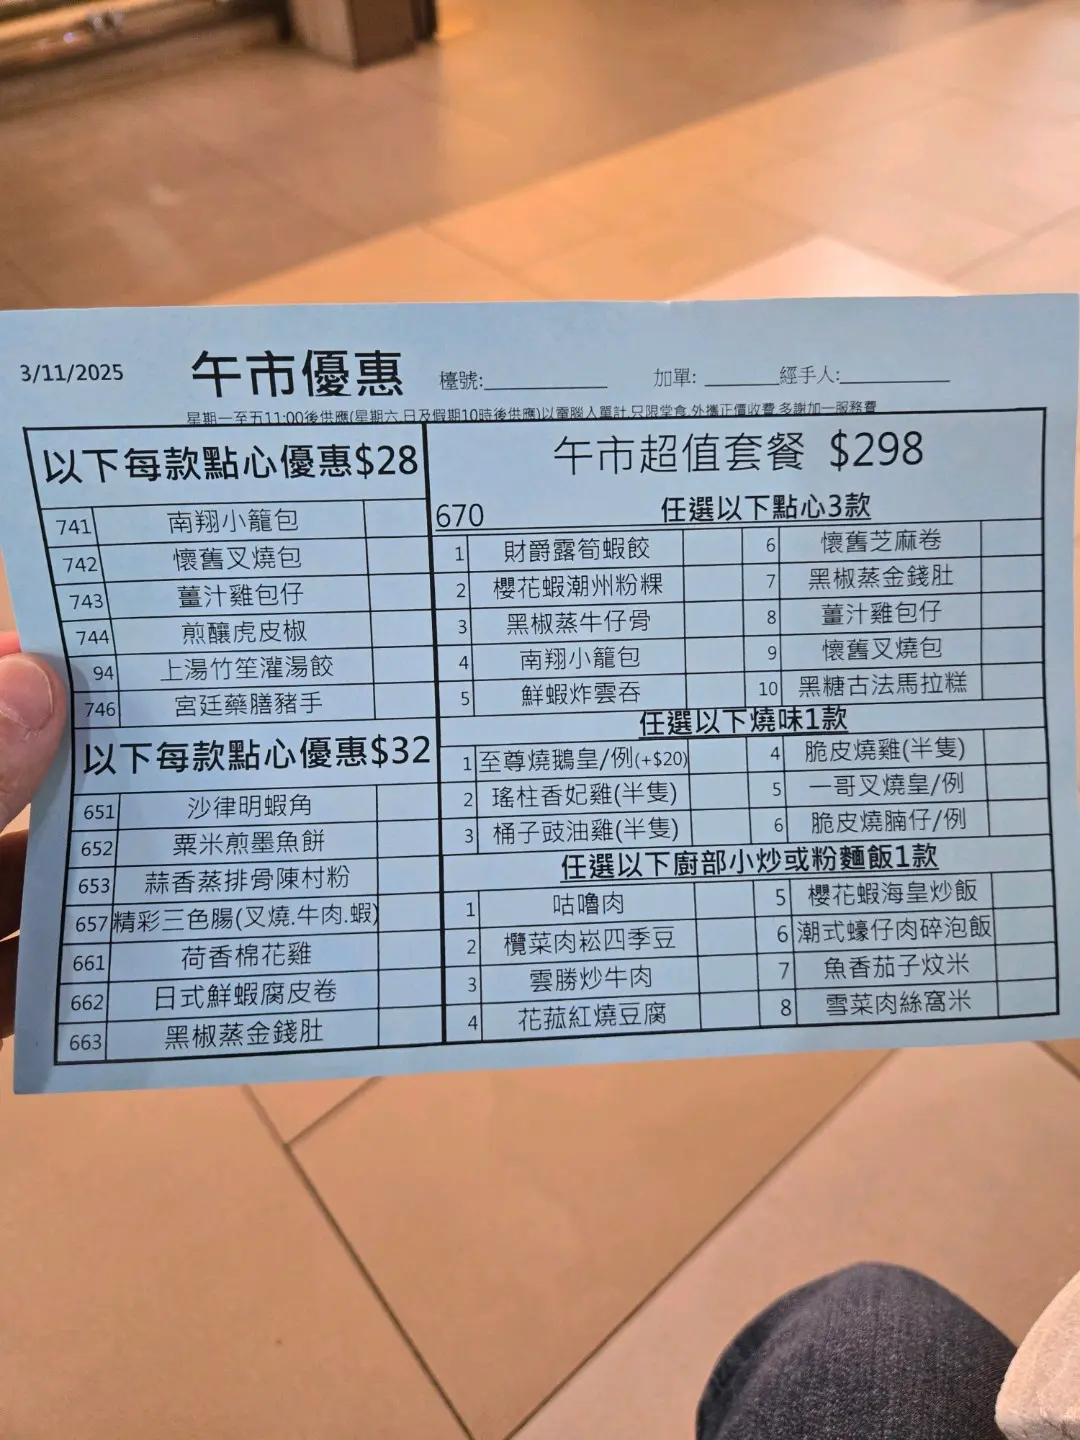 3/11/2025
午市優惠
檯號:
加單:
經手人:
星期一至五11:00後供應(星期六,日及假期10時後供應)以電腦入單計,只限堂食,外攜正價收費,多謝加一服務費
以下每款點心優惠$28
741 南翔小籠包
742 懷舊叉燒包
743 薑汁雞包仔
744 煎釀虎皮椒
94 上湯竹笙灌湯餃
746 宮廷藥膳豬手
以下每款點心優惠$32
651 沙律明蝦角
652 粟米煎墨魚餅
653 蒜香蒸排骨陳村粉
657 精彩三色腸(叉燒.牛肉.蝦)
661 荷香棉花雞
662 日式鮮蝦腐皮卷
663 黑椒蒸金錢肚
午市超值套餐 $298
670 任選以下點心3款
1 財爵露筍蝦餃 6 懷舊芝麻卷
2 櫻花蝦潮州粉粿 7 黑椒蒸金錢肚
3 黑椒蒸牛仔骨 8 薑汁雞包仔
4 南翔小籠包 9 懷舊叉燒包
5 鮮蝦炸雲吞 10 黑糖古法馬拉糕
任選以下燒味1款
1 至尊燒鵝皇/例(+$20) 4 脆皮燒雞(半隻)
2 瑤柱香妃雞(半隻) 5 一哥叉燒皇/例
3 桶子豉油雞(半隻) 6 脆皮燒腩仔/例
任選以下廚部小炒或粉麵飯1款
1 咕嚕肉 5 櫻花蝦海皇炒飯
2 欖菜肉崧四季豆 6 潮式蠔仔肉碎泡飯
3 雲勝炒牛肉 7 魚香茄子炆米
4 花菰紅燒豆腐 8 雪菜肉絲窩米